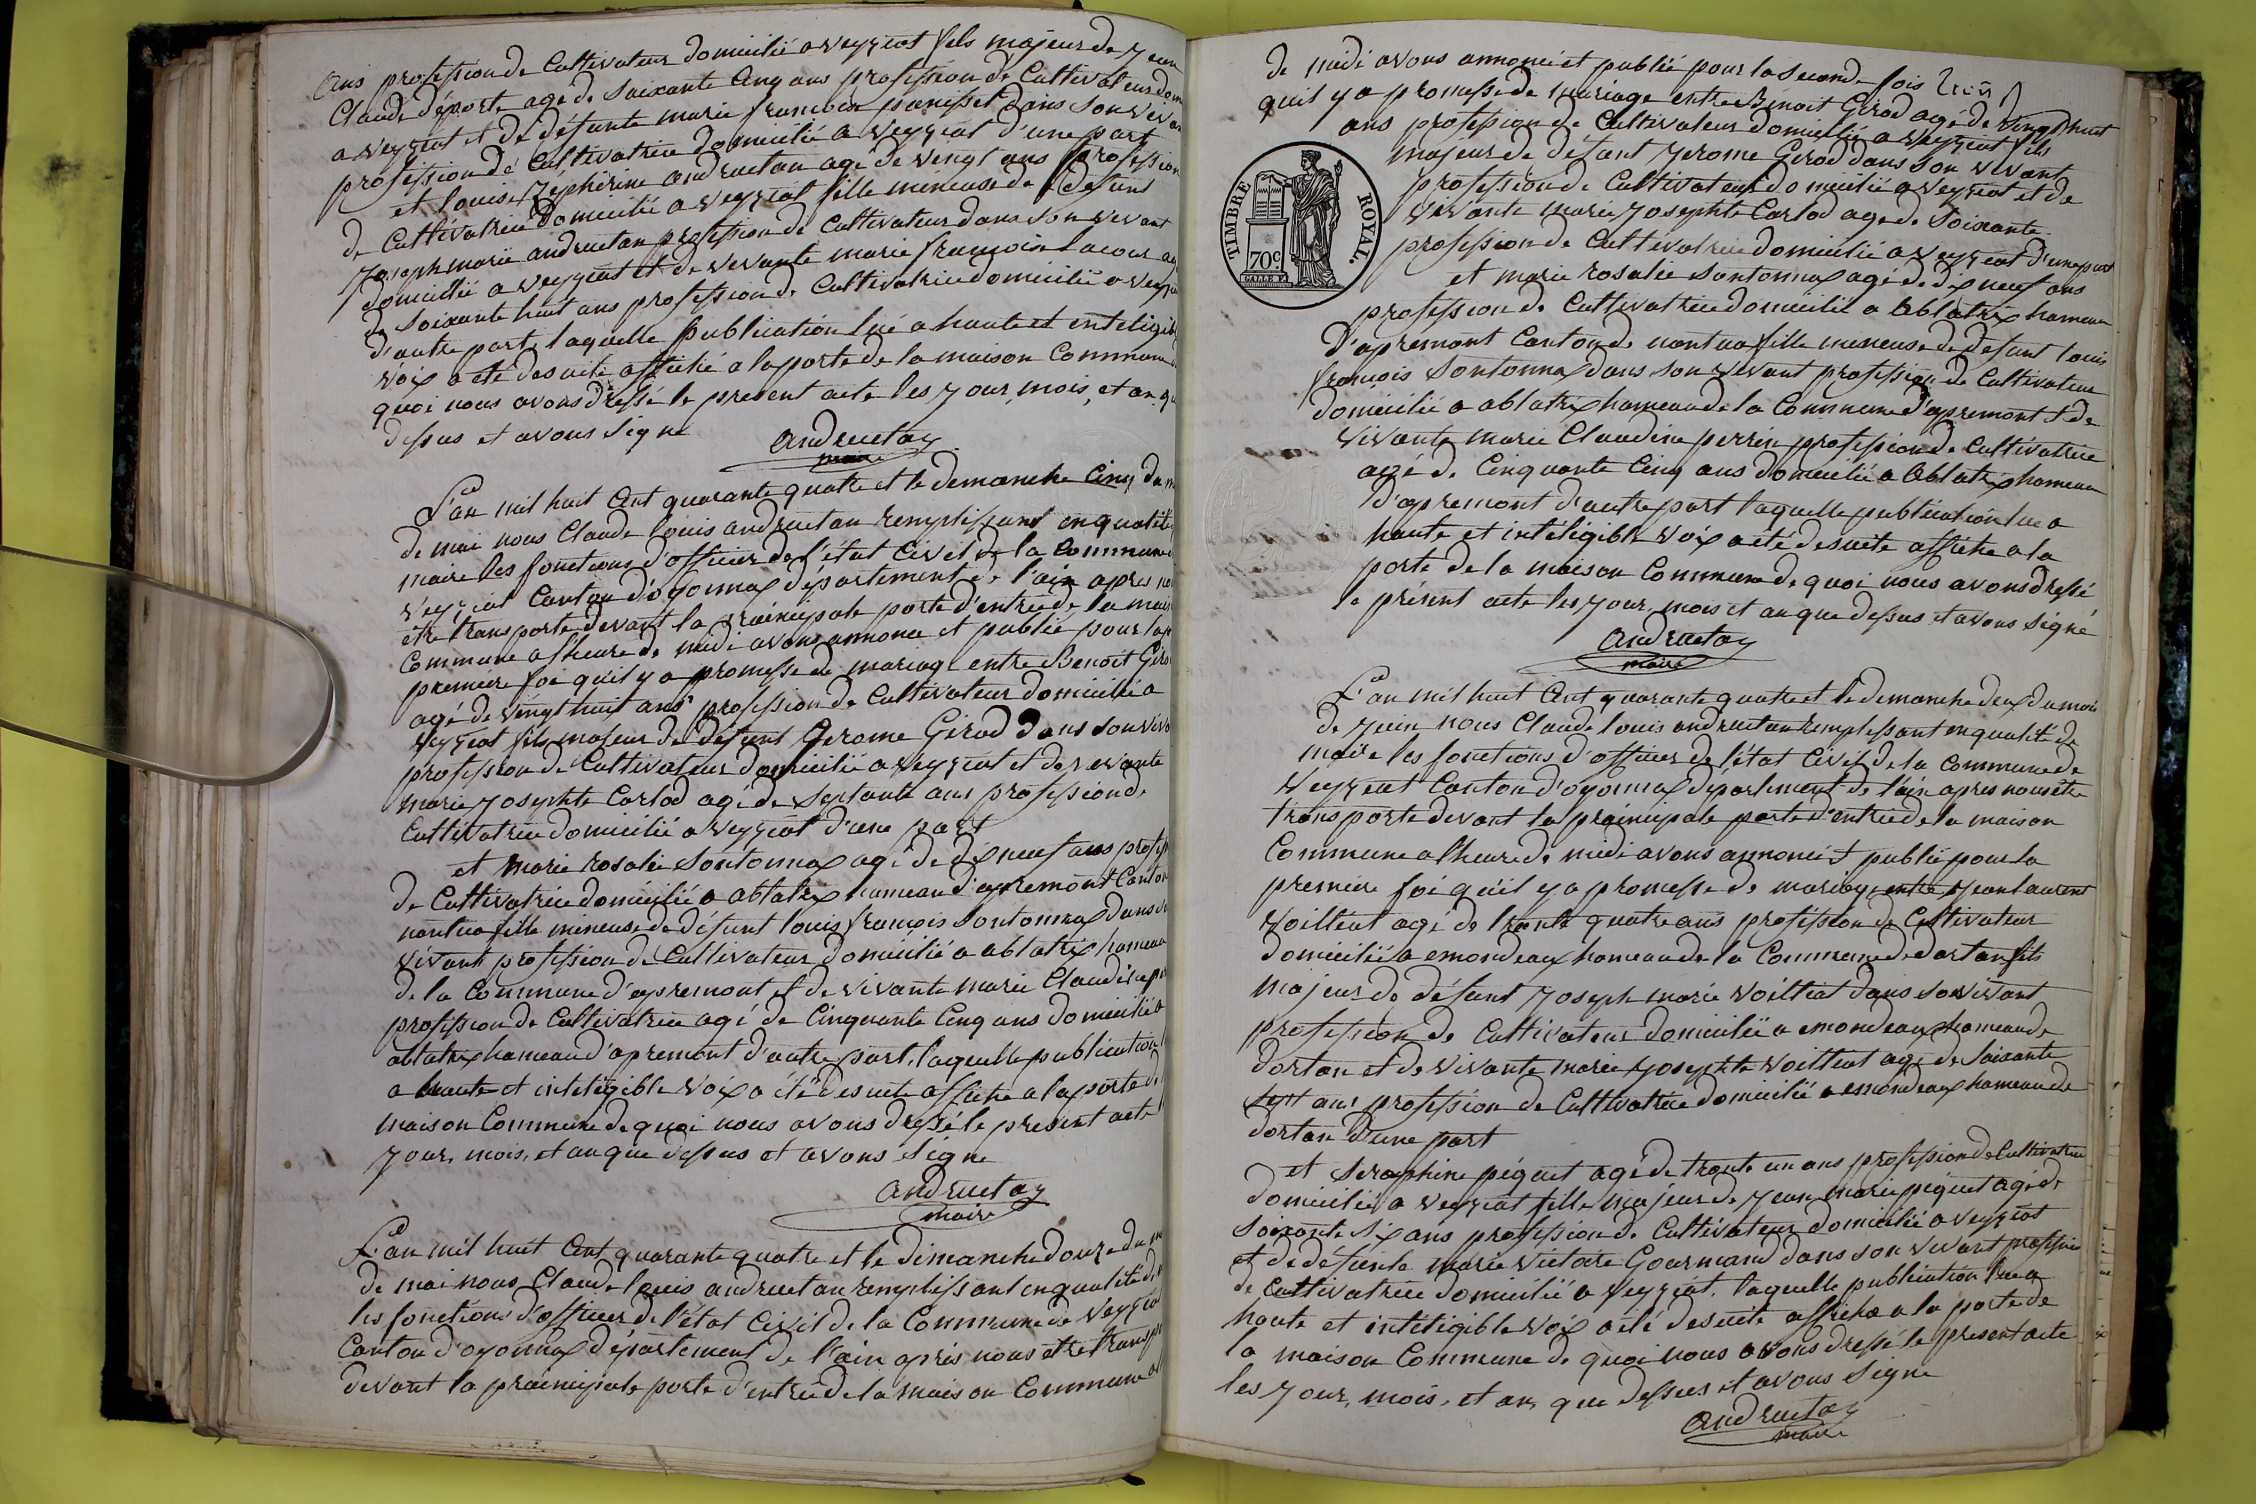 ans profession de Cultivateur domicilié a veyziat fils majeur de jean
Claude déporte agé de soixante cinq ans profession de Cultivateur dom
a veyziat et de défunte marie francoise panisset dans son viva
profession de Cultivatrice domicilié a veyziat d'une part
et louise zéphirine andruetan agé de vingt ans profession
de Cultivatrice domicilié a veyziat fille mineuse de défunt
joseph marie andruetan profession de Cultivateur dans son vivant
domicillié a veyziat et de vivante marie francoise lacour ag
de soixante huit ans profession de Cultivatrice domicilié a veyzia
d'autre part, laquelle publication lue a haute et inteligib
voix a eté desuite affiché a la porte de la maison Commune d
quoi nous avons dressé le present acte les jour, mois, et an qu
dessus et avons signe
andruetan
maire
L'an mil huit Cent quarante quatre et le demanche cinq du m
de mai nous Claude louis andruetan remplissant en qualité
maire les fonctions d'officier de l'état Civil de la Commune d
veyziat Canton d'oyonnax département de l'ain apres no
etre transporte devant la prainicipale porte d'entrée de la mais
Commune a l'heure de midi avons annonce et publie pour la
premiere foi qu'il y a promesse de mariage entre Benoit Giro
agé de vingt huit ans profession de Cultivateur domicilié a
veyziat fils majeur de défunt Jerome Girod dans son viva
profession de Cultivateur domicilié a veyziat et de vivante
marie josephte Carlod agé de septante ans profession de
Cultivatrice domicilié a veyziat d'une part
et marie rosalie sontonnax agé de dix neuf ans profess
de Cultivatrice domicilié a ablatrix hameau d'apremont Canton
nantua fille mineuse de défunt louis francois sontonnax dans so
vivant profession de Cultivateur domicilié a ablatrix hameau
de la Commune d'apremont et de vivante marie Claudine pe
profession de Cultivatrice agé de Cinquante Cinq ans domicilié a
ablatrix hameau d'apremont d'autre part, laquelle publication
a haute et inteligible voix a été desuite affiche a la porte de
maison Commune de quoi nous avons dressé le present acte
jour, mois, et an que dessus et avons signe
andruetan
maire
L'an mil huit Cent quarante quatre et le dimanche douze du m
de mai nous Claude louis andruetan remplissant en qualité de
les fonctions d'officier de l'état Civil de la Commune de veyziat
Canton d'oyonnax département de l'ain aprés nous etre transp
devant la prainicipale porte d'entrée de la maison Commune a
de midi avons annoncé et publié pour la seconde fois
quil y a promesse de mariage entre Benoit Girod agé de vingt huit
ans profession de Cultivateur domicilié a veyziat fils
majeur de défunt jerome Girod dans son vivant
profession de Cultivateur domicilié a veyziat et de
vivante marie josephte Carlod agé de soixante
profession de Cultivatrice domicilié a veyziat d'une part
et marie rosalie sontonnax agé de dix neuf ans
profession de Cultivatrice domicilié a ablatrix hameau
d'apremont Canton de nantua fille mineuse de defunt louis
francois sontonnax dans son vivant profession de Cultivateur
domicilié a ablatrix hameau de la Commune d'apremont et de
vivante marie Claudine perrin profession de Cultivatrice
agé de Cinquante Cinq ans domicilié a ablatrix hameau
d'apremont d'autre part laquelle publication lue a
haute et inteligible voix a eté desuite affiche a la
porte de la maison Commune de quoi nous avons dressé
le présent acte les jour, mois et an que dessus et avons signé
andruetan
maire
TIMBRE ROYAL.
70c
L'an mil huit Cent quarante quatre et le demanche deux du mois
de juin nous Claude louis andruetan remplissant en qualité de
maire les fonctions d'officier de l'état Civil de la Commune de
veyziat Canton d'oyonnax département de l'ain apres nous être
transporte devant la prainicipale porte d'entrée de la maison
Commune a l'heure de midi avons annoncé et publié pour la
premiere foi qu'il y a promesse de mariage entre jean laurent
voilliat agé de trente quatre ans profession de Cultivateur
domicilié a emondeaux hameau de la Commune de dortan fils
majeur de défunt joseph marie voilliat dans son vivant
profession de Cultivateur domicilié a emondeaux hameau de
dortan et de vivante marie josephte voilliat agé de soixante
sept ans profession de Cultivatrice domicilié a emondeaux hameau de
dortan d'une part
et seraphine péquet agé de trente un ans profession de Cultivatrice
domicilié a veyziat fille majeur de jean marie péquet agé de
soixante six ans profession de Cultivateur domicilié a veyziat
et de défunte marie victoire Gourmand dans son vivant profession
de Cultivatrice domicilié a veyziat, laquelle publication lue a
haute et inteligible voix a eté desuite affiche a la porte de
la maison Commune de quoi nous avons dressé le present acte
les jour, mois, et an, que dessus et avons signe
andruetan
maire